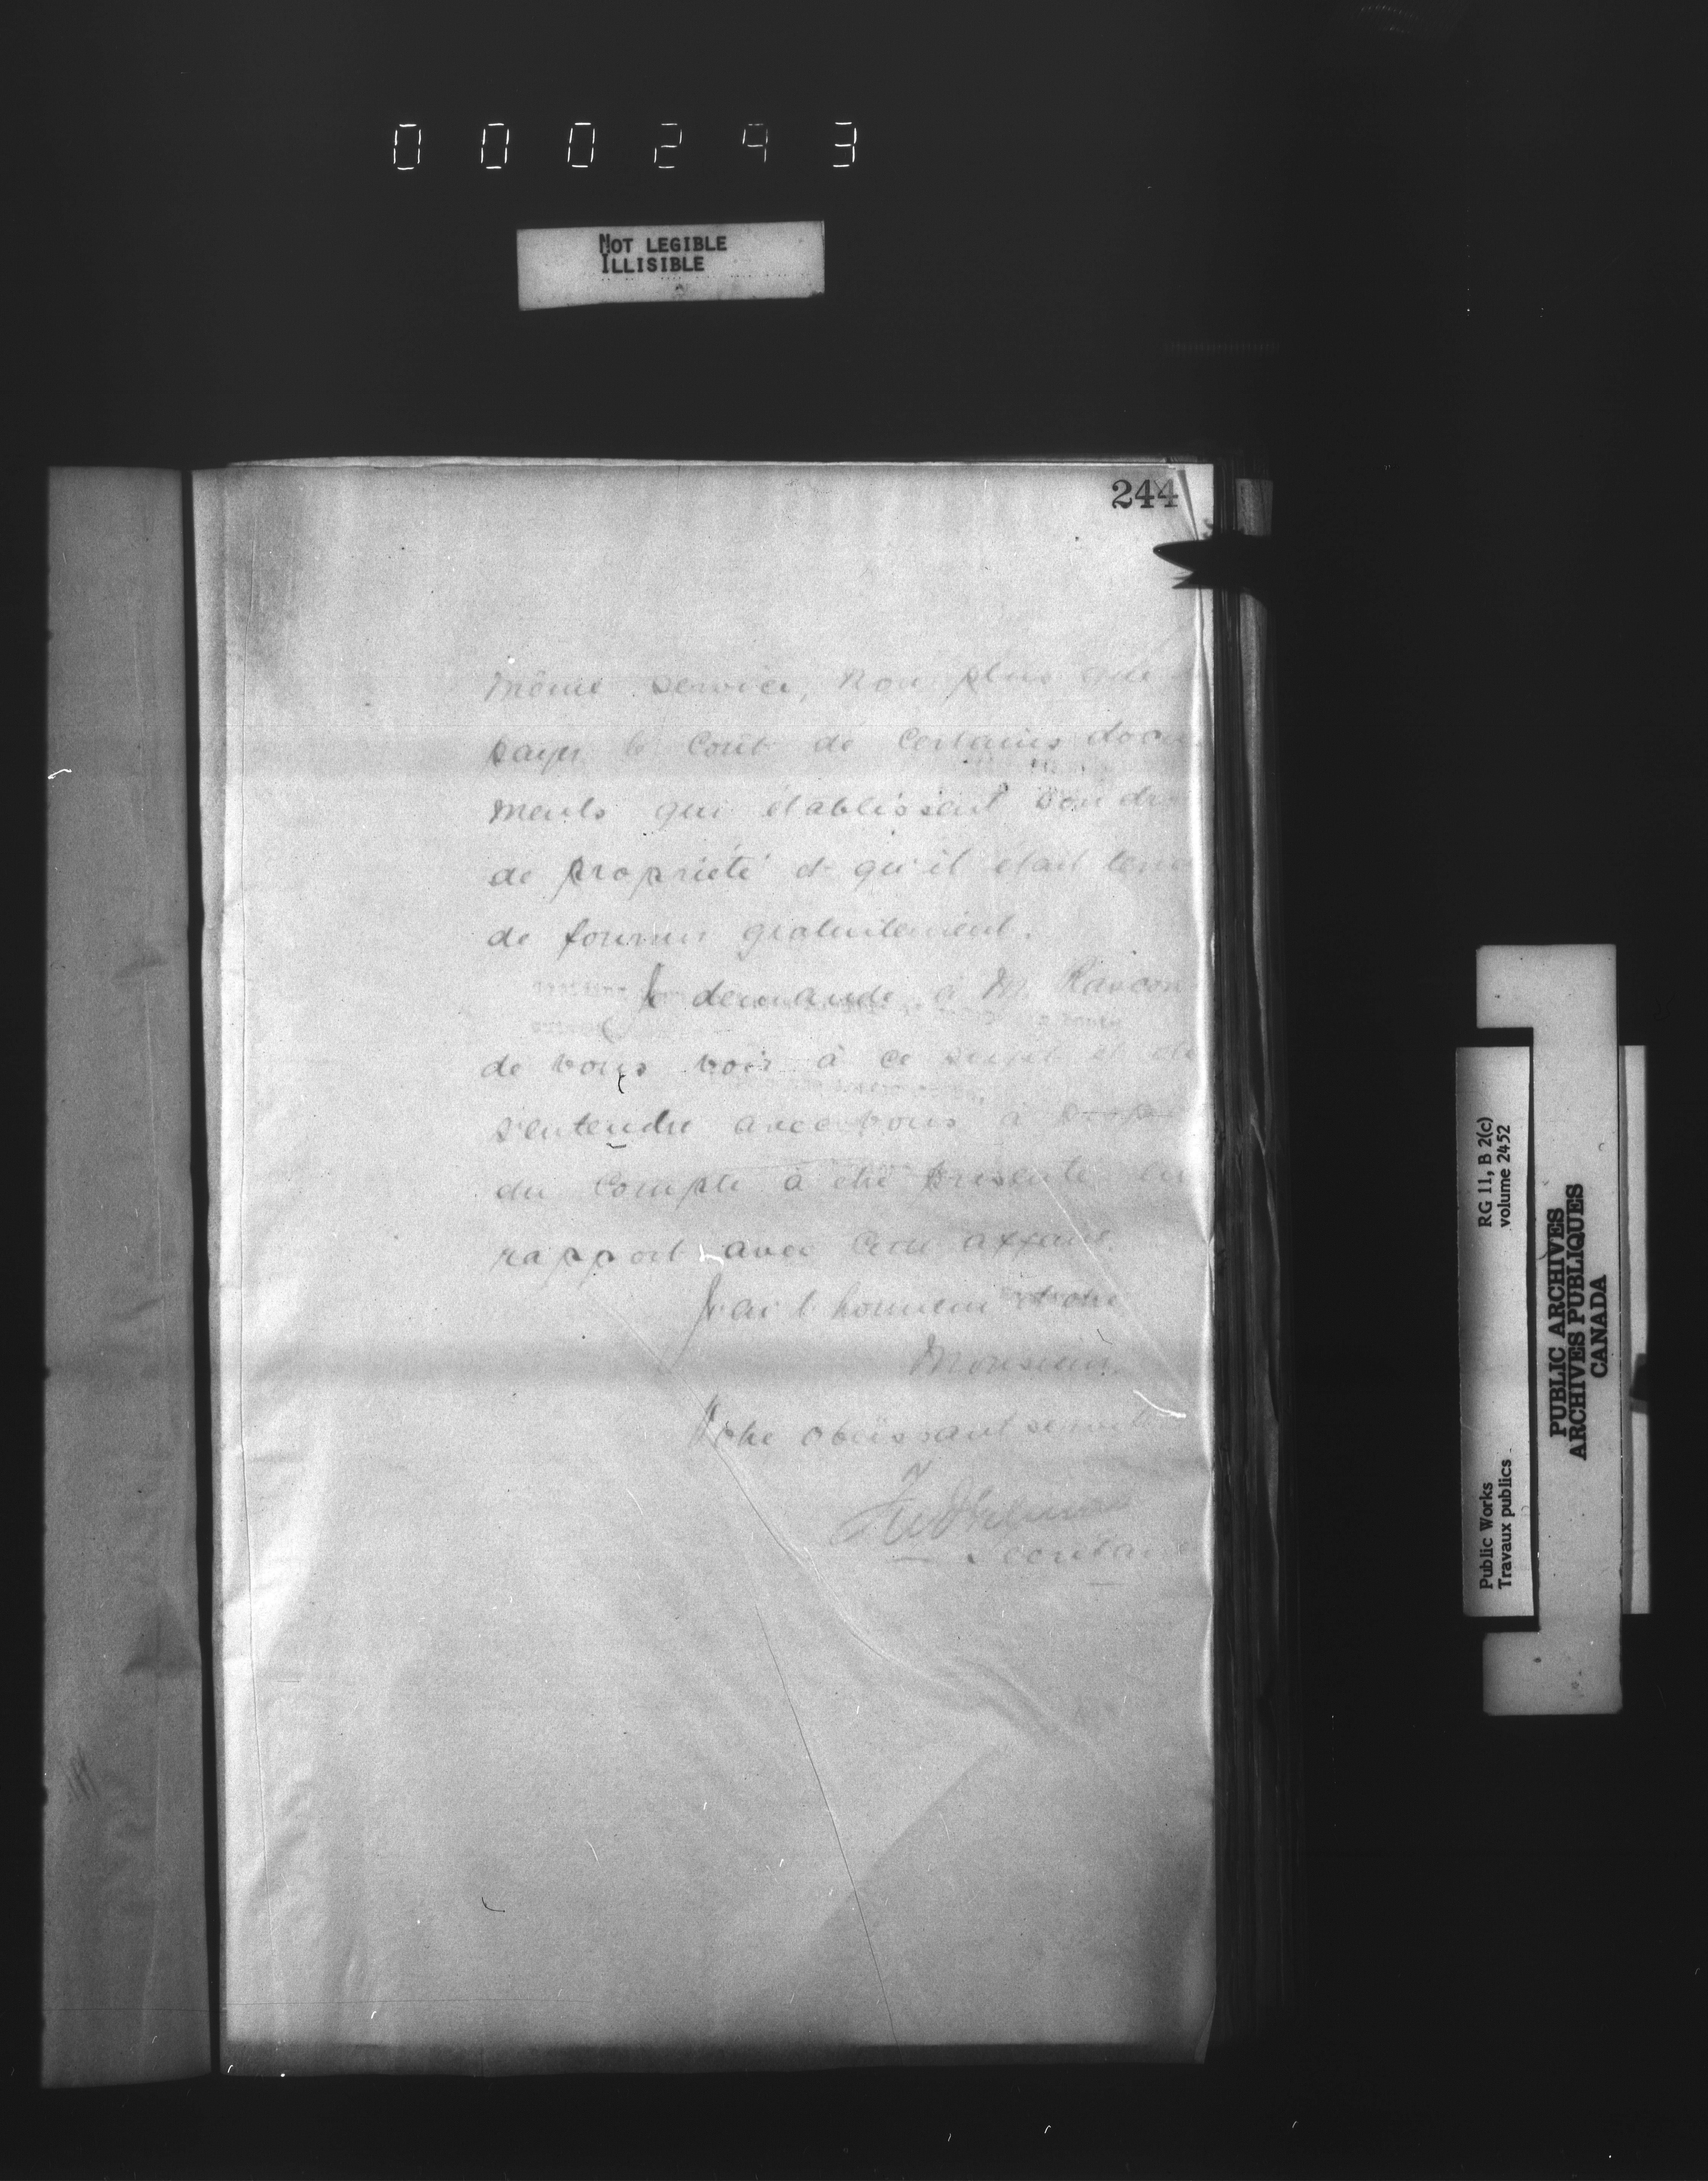 000243
NOT LEGIBLE
ILLISIBLE
244
même service, non plus que
payer le coût de certains docu
ments qui établissent son dro
de propriété et qu'il était tenu
de fournir gratuitement.
Je demande à M.
de vous voir à ce sujet et de
s'entendre avec vous à
du compte à être présenté en
rapport avec cette affaire.
J'ai l'honneur d'être
Monsieur,
Votre obéissant servit
Secrétaire
RG 11, B 2(c)
volume 2452
Public Works
Travaux publics
PUBLIC ARCHIVES
ARCHIVES PUBLIQUES
CANADA